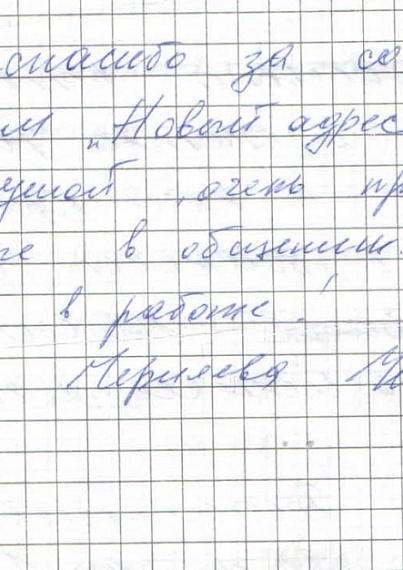 спасибо за со
м "Новый адрес
ушой, очень пр
е в общении.
в работе!
Черняева